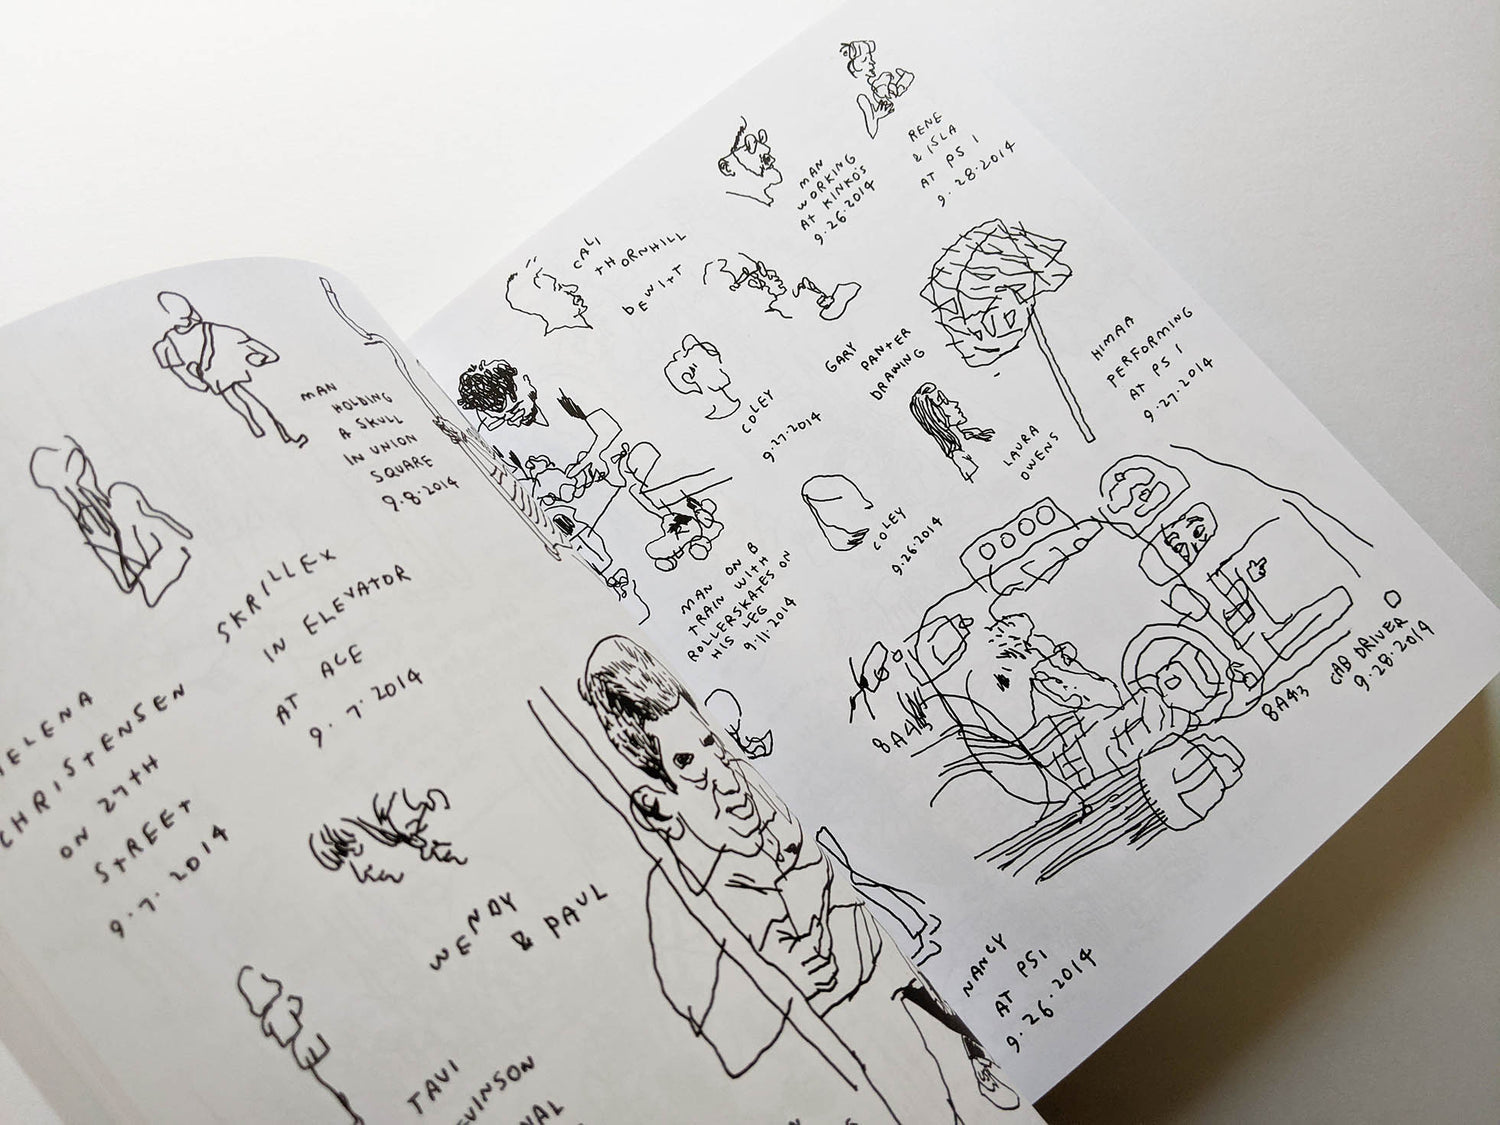 MAN
HOLDING
A SKULL
IN UNION
SQUARE
9.8.2014
SKRILLEX
IN ELEVATOR
AT ACE
9.7.2014
HELENA
CHRISTENSEN
ON 27TH
STREET
9.7.2014
WENDY
& PAUL
TAVI
RENE
& ISLA
AT PS 1
9.28.2014
MAN
WORKING
AT KINKO'S
9.26.2014
CALI
THORNHILL
DEWITT
GARY
PANTER
DRAWING
HIMAA
PERFORMING
AT PS 1
9.27.2014
COLEY
9.27.2014
LAURA
OWENS
COLEY
9.26.2014
MAN ON B
TRAIN WITH
ROLLERSKATES ON
HIS LEG
9.11.2014
8A43
8A43
CAB DRIVER
9.28.2014
NANCY
AT PS1
9.26.2014